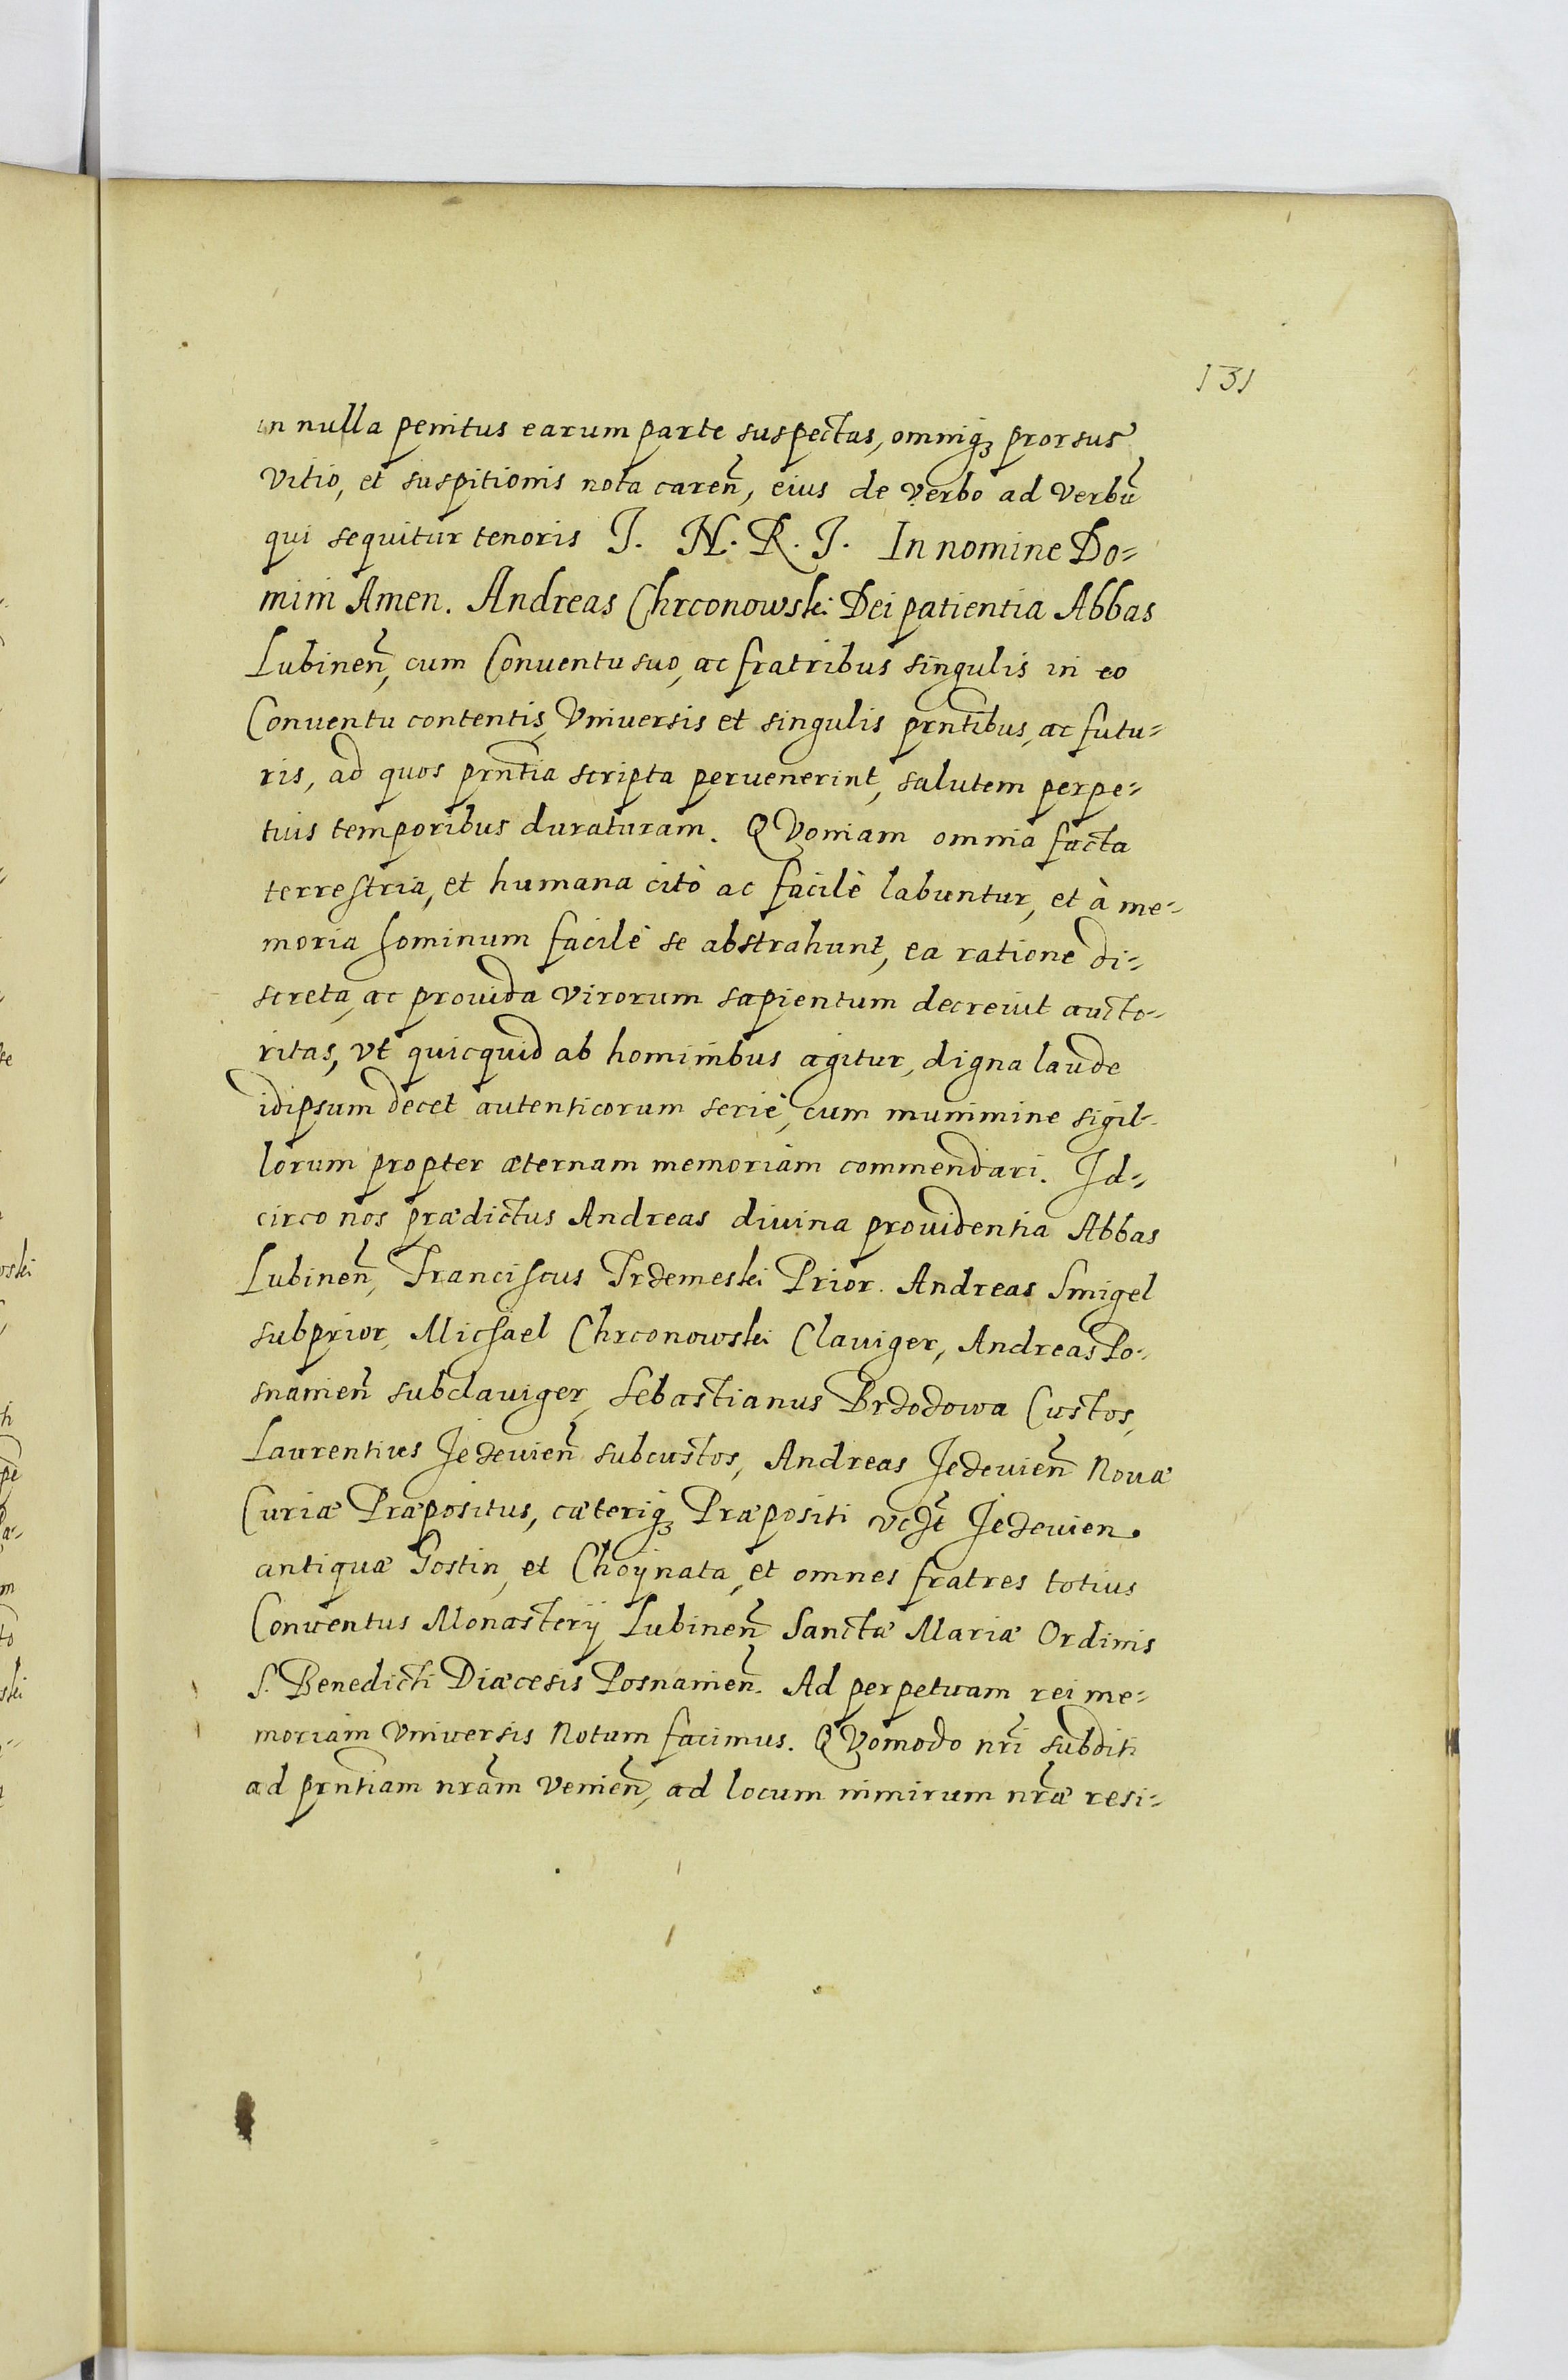 131
in nulla penitus earum parte suspectas, omniq₃ prorsus
vitio, et suspitionis nota careñ, eius de verbo ad verbũ
qui sequitur tenoris J. N. R. J. In nomine Do=
mini Amen. Andreas Chrconowski Dei patientia Abbas
Lubineñ, cum Conuentu suo, ac fratribus singulis in eo
Conuentu contentis, Vniuersis et singulis prñtibus, ac futu=
ris, ad quos prñtia scripta peruenerint, salutem perpe=
tuis temporibus duraturam. QVoniam omnia facta
terrestria, et humana citò ac facilè labuntur, et à me=
moria hominum facilè se abstrahunt, ea ratione di=
screta, ac prouida virorum sapientum decreuit aucto=
ritas, vt quicquid ab hominibus agitur, digna laude
idipsum decet autenticorum serie, cum munimine sigil=
lorum propter æternam memoriam commendari. Id=
circo nos prædictus Andreas diuina prouidentia Abbas
Lubineñ, Franciscus Trdemeski Prior. Andreas Smigel
subprior, Michael Chrconowski Clauiger, Andreas Po=
snanieñ subclauiger, Sebastianus Brdodowa Custos,
Laurentius Jedeuieñ subcustos, Andreas Jedeuieñ Nouæ
Curiæ Præpositus, cæteriq₃ Præpositi Jedeuien.
antiquæ Gostin, et Choÿnata, et omnes fratres totius
Conuentus Monasterÿ Lubineñ Sanctæ Mariæ Ordinis
S. Benedicti Diæcesis Posnanieñ. Ad perpetuam rei me=
moriam Vniuersis Notum facimus. QVomodo nr̃i subditi
ad prñtiam nr̃am venieñ, ad locum nimirum nr̃æ resi=